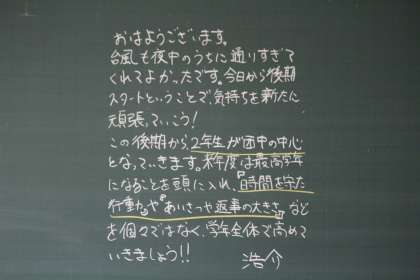 おはようございます。
台風も夜中のうちに通りすぎて
くれてよかったです。今日から後期
スタートということで、気持ちを新たに
頑張っていこう!
この後期から、2年生が団中の中心
となっていきます。来年度は最高学年
になることを頭に入れ、『時間を守た
行動』や『あいさつや返事の大きさ』など
を個々ではなく、学年全体で高めて
いきましょう!!
浩介